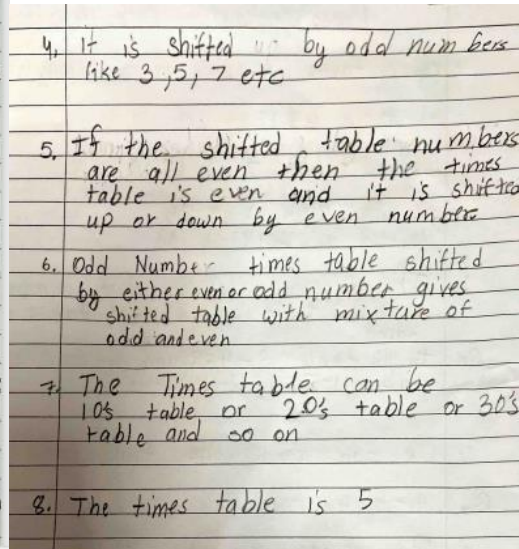 4. it is shifted by odd numbers
like 3,5, 7 etc
5. If the shifted table numbers
are all even then the times
table is even and it is shifted
up or down by even number
6. Odd Number times table shifted
by either even or odd number gives
shifted table with mixture of
odd and even
7. The Times table can be
10s table or 20's table or 30's
table and so on
8. The times table is 5